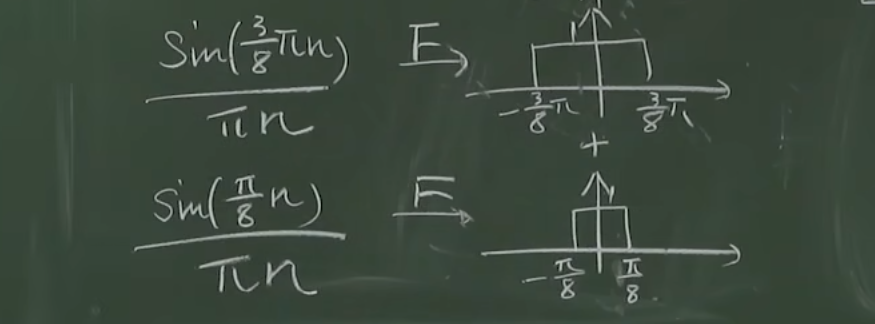 sin(3/8 πn) / πn F → 1 -3/8 π 3/8 π
+
sin(π/8 n) / πn F → 1 -π/8 π/8